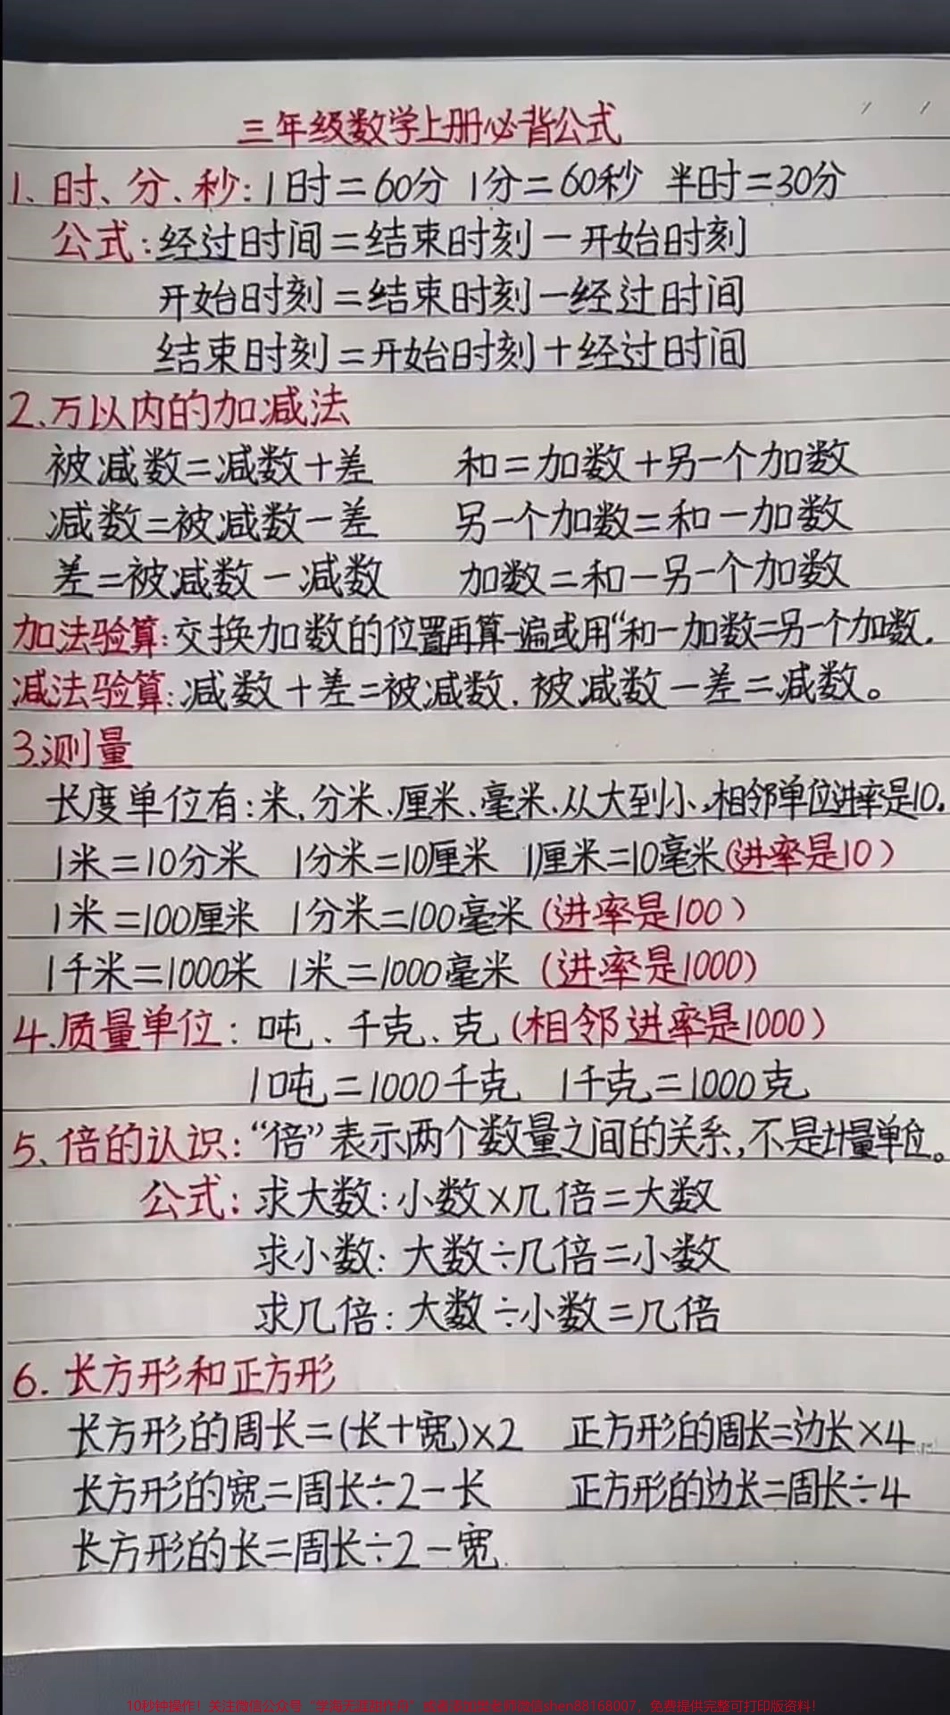 三年级数学上册必背公式
1、时、分、秒:1时=60分 1分=60秒 半时=30分
公式:经过时间=结束时刻-开始时刻
开始时刻=结束时刻-经过时间
结束时刻=开始时刻+经过时间
2、万以内的加减法
被减数=减数+差 和=加数+另一个加数
减数=被减数-差 另一个加数=和-加数
差=被减数-减数 加数=和-另一个加数
加法验算:交换加数的位置再算一遍或用“和-加数=另一个加数.
减法验算:减数+差=被减数.被减数-差=减数。
3.测量
长度单位有:米、分米、厘米、毫米.从大到小,相邻单位进率是10.
1米=10分米 1分米=10厘米 1厘米=10毫米(进率是10)
1米=100厘米 1分米=100毫米(进率是100)
1千米=1000米 1米=1000毫米(进率是1000)
4.质量单位:吨、千克、克(相邻进率是1000)
1吨=1000千克 1千克=1000克
5、倍的认识:“倍”表示两个数量之间的关系,不是计量单位。
公式:求大数:小数×几倍=大数
求小数:大数÷几倍=小数
求几倍:大数÷小数=几倍
6.长方形和正方形
长方形的周长=(长+宽)×2 正方形的周长=边长×4
长方形的宽=周长÷2-长 正方形的边长=周长÷4
长方形的长=周长÷2-宽
10秒钟操作!关注微信公众号 免费提供完整可打印版资料!